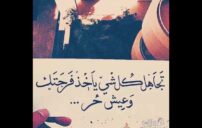 تجاهل كل شي ياخذ فرحتك
وعيش حر ...